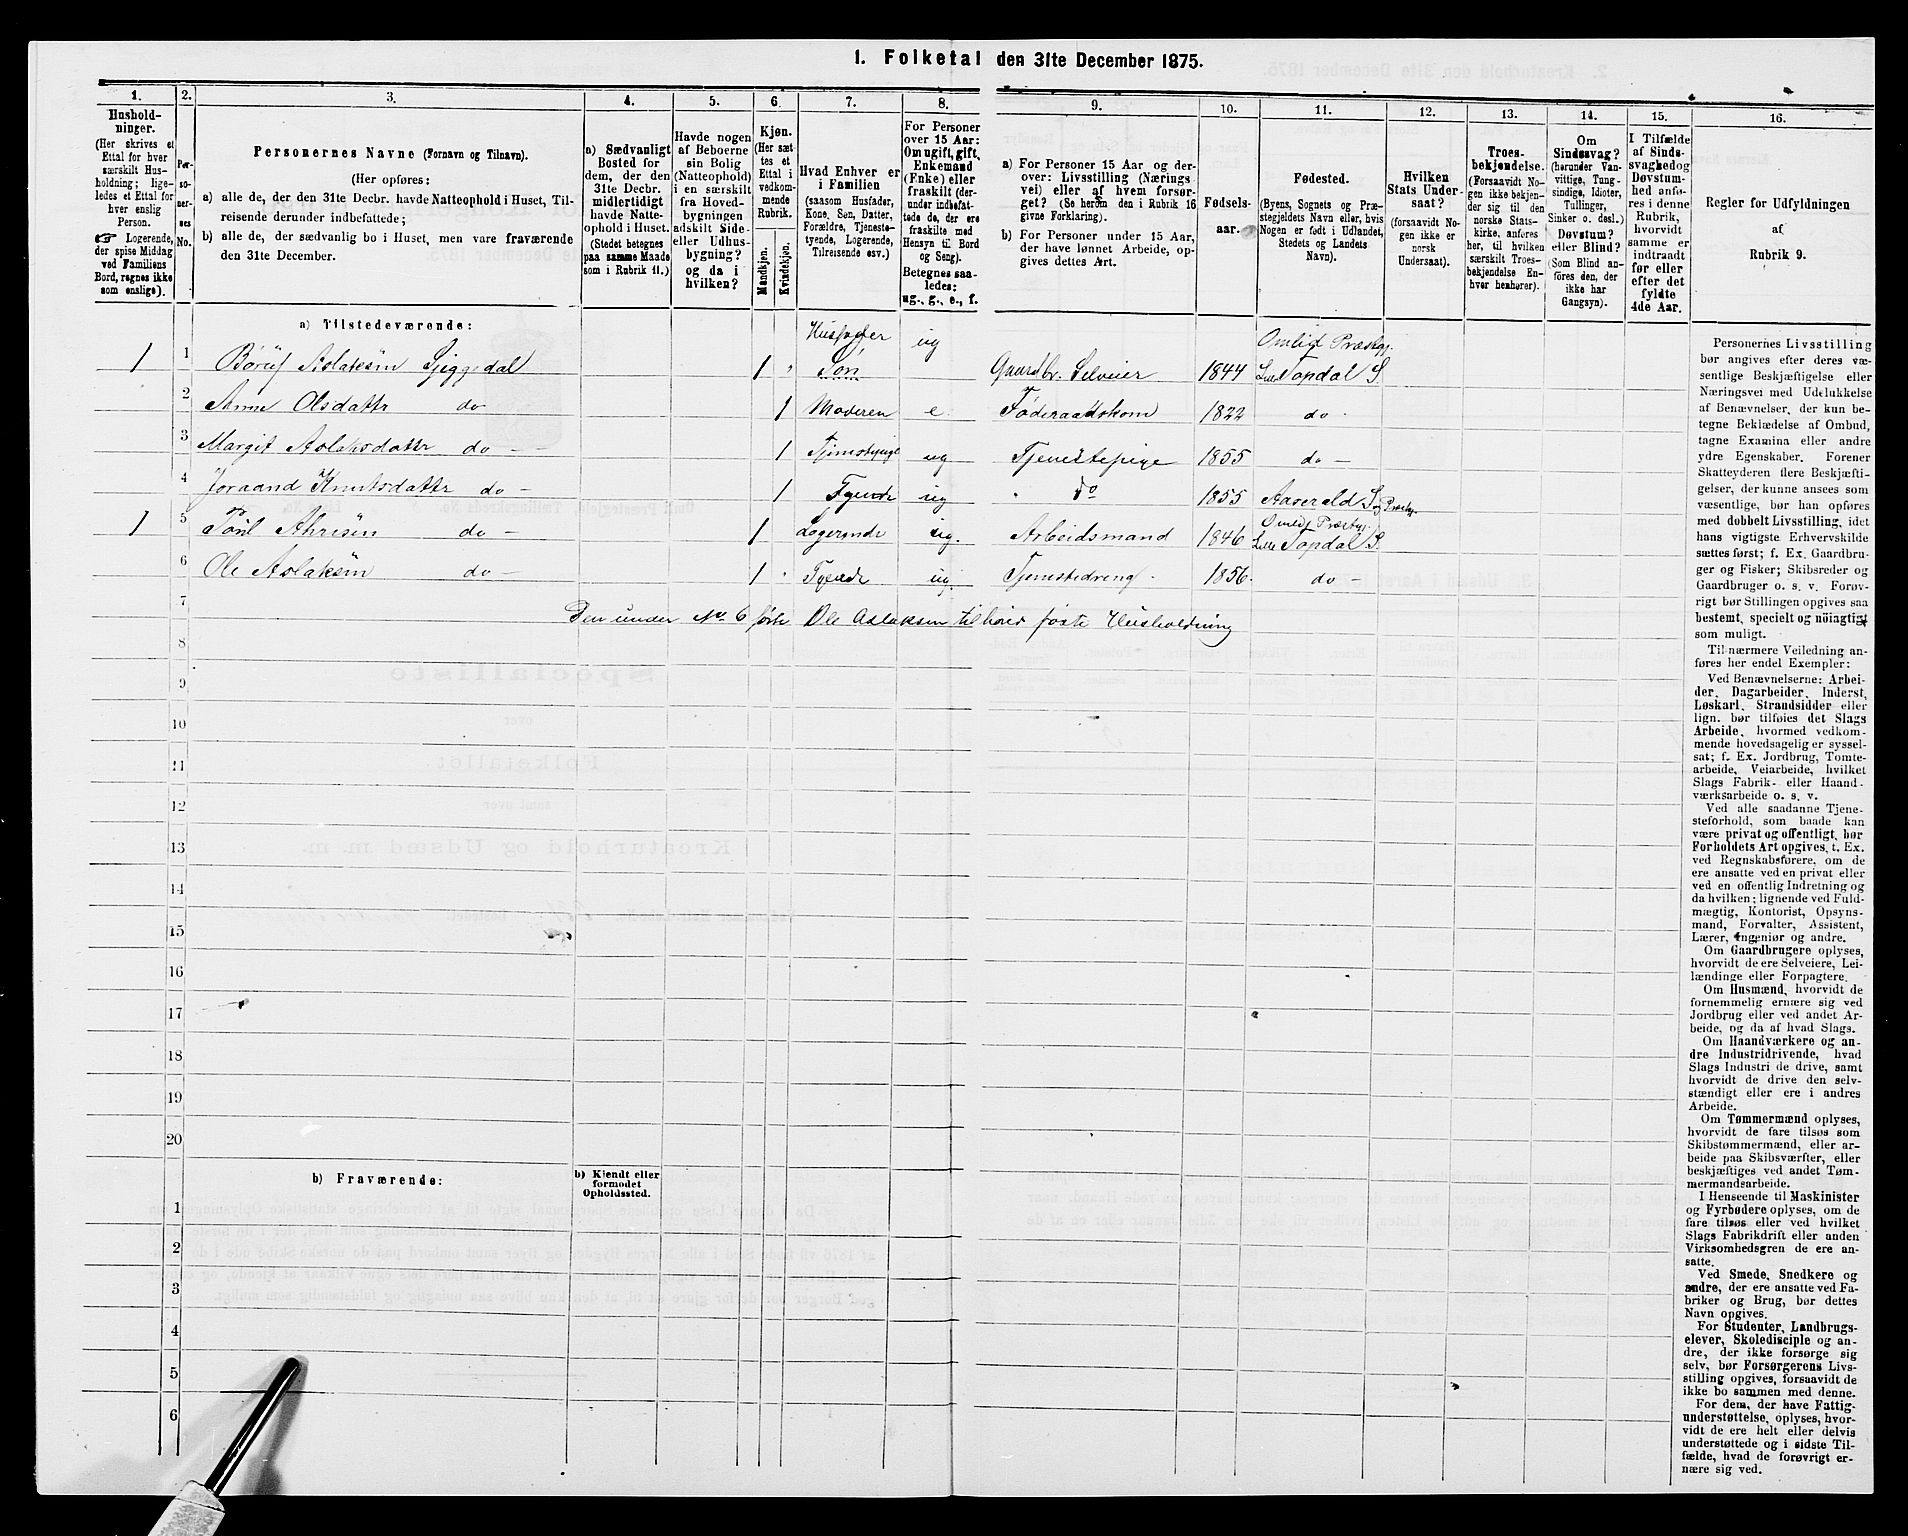 1. Folketal den 31te December 1875.
1.
2.
3.
4.
5.
6.
7.
8.
9.
10.
11.
12.
13.
14.
15.
16.
Hushold-
ninger.
(Her skrives et
Ettal for hver
særskilt Hus-
holdning; lige-
ledes et Ettal for
hver enslig
Person.
☞ Logerende,
der spise Middag
ved Familiens
Bord, regnes ikke
som enslige).
Per-
so-
ner-
nes
No.
Personernes Navne (Fornavn og Tilnavn).
(Her opføres:
a) alle de, der den 31te Decbr. havde Natteophold i Huset, Til-
reisende derunder indbefattede;
b) alle de, der sædvanlig bo i Huset, men vare fraværende
den 31te December.
a) Sædvanligt
Bosted for
dem, der den
31te Decbr.
midlertidigt
havde Natte-
ophold i Huset.
(Stedet betegnes
paa samme Maade
som i Rubrik 11.)
Havde nogen
af Beboerne
sin Bolig
(Natteophold)
i en særskilt
fra Hoved-
bygningen
adskilt Side-
eller Udhus-
bygning?
og da i
hvilken?
Kjøn.
(Her sæt-
tes et
Ettal i
vedkom-
mende
Rubrik.
Mandkjøn.
Kvindekjøn.
Hvad Enhver er
i Familien
(saasom Husfader,
Kone, Søn, Datter,
Forældre, Tjeneste-
tyende, Logerende,
Tilreisende osv.)
For Personer
over 15 Aar:
Om ugift, gift,
Enkemand
(Enke) eller
fraskilt (der-
under indbefat-
tede de, der ere
fraskilte med
Hensyn til Bord
og Seng).
Betegnes saa-
ledes:
ug., g., e., f.
a) For Personer 15 Aar og der-
over: Livsstilling (Nærings-
vei) eller af hvem forsør-
get? (Se herom den i Rubrik 16
givne Forklaring).
b) For Personer under 15 Aar,
der have lønnet Arbeide, op-
gives dettes Art.
Fødsels-
aar.
Fødested.
(Byens, Sognets og Præ-
stegjeldets Navn eller, hvis
Nogen er født i Udlandet,
Stedets og Landets
Navn).
Hvilken
Stats Under-
saat?
(forsaavidt No-
gen ikke er
norsk
Undersaat).
Troes-
bekjendelse.
(Forsaavidt No-
gen ikke bekjen-
der sig til den
norske Stats-
kirke, anføres
her, til hvilken
særskilt Troes-
bekjendelse En-
hver henhører).
Om
Sindssvag?
(herunder Van-
vittige, Tung-
sindige, Idioter,
Tullinger,
Sinker o. desl.)
Døvstum?
eller Blind?
(Som Blind an-
føres den, der
ikke har
Gangsyn).
I Tilfælde
af Sinds-
svaghed og
Døvstum-
hed anfø-
res i denne
Rubrik,
hvorvidt
samme er
indtraadt
før eller
efter det
fyldte
4de Aar.
Regler for Udfyldningen
af
Rubrik 9.
a) Tilstedeværende:
Husfader ug Omlid Præstgj.
1 1 Aslaksen 1 Søn Gaardbr. Selveier 1844 Topdal S.
2 Anne Olsdattr do 1 Moderen e Føderaadskone 1822 do
3 Margit Aslaksdattr do 1 ug Tjenestepige 1855 do
4 Joraand Knutsdattr do 1 ug do 1855 Aaserald S og Præstgj.
Omlid Præstgj.
1 5 do 1 Logerende ug. Arbeidsmand 1846 Lille Topdal S.
6 Ole Aslaksen do 1 ug. Tjenestedreng 1856 do
7 Den under No 6 førte Ole Aslaksen tilhører første Husholdning
8
9
10
11
12
13
14
15
16
17
18
19
20
b) Fraværende:
b) Kjendt eller
formodet
Opholdssted.
1
2
3
4
5
6
Personernes Livsstilling
bør angives efter deres væ-
sentlige Beskjæftigelse eller
Næringsvei med Udelukkelse
af Benævnelser, der kun be-
tegne Beklædelse af Ombud,
tagne Examina eller andre
ydre Egenskaber. Forener
Skatteyderen flere Beskjæfti-
gelser, der kunne ansees som
væsentlige, bør han opføres
med dobbelt Livsstilling, idet
hans vigtigste Erhvervskilde
sættes først; f. Ex. Gaardbru-
ger og Fisker; Skibsreder og
Gaardbruger o. s. v. Forøv-
rigt bør Stillingen opgives saa
bestemt, specielt og nöiagtigt
som muligt.
Til nærmere Veiledning an-
føres her endel Exempler:
Ved Benævnelserne: Arbei-
der, Dagarbeider, Inderst,
Løskarl, Strandsidder eller
lign. bør tilføies det Slags
Arbeide, hvormed vedkom-
mende hovedsagelig er syssel-
sat; f. Ex. Jordbrug, Tomte-
arbeide, Veiarbeide, hvilket
Slags Fabrik- eller Haand-
værksarbeide o. s. v.
Ved alle saadanne Tjene-
steforhold, som baade kan
være privat og offentligt, bør
Forholdets Art opgives, t. Ex.
ved Regnskabsførere, om de
ere ansatte ved en privat eller
ved en offentlig Indretning og
da hvilken; lignende ved Fuld-
mægtig, Kontorist, Opsyns-
mand, Forvalter, Assistent,
Lærer, Ingeniør og andre.
Om Gaardbrugere oplyses,
hvorvidt de ere Selveiere, Lei-
lændinge eller Forpagtere.
Om Husmænd, hvorvidt de
fornemmelig ernære sig ved
Jordbrug eller ved andet Ar-
beide, og da af hvad Slags.
Om Haandværkere og an-
dre Industridrivende, hvad
Slags Industri de drive, samt
hvorvidt de drive den selv-
stændigt eller ere i andres
Arbeide.
Om Tømmermænd oplyses,
hvorvidt de fare tilsøs som
Skibstømmermænd, eller ar-
beide paa Skibsværfter, eller
beskjæftiges ved andet Tøm-
mermandsarbeide.
I Henseende til Maskinister
og Fyrbødere oplyses, om de
fare tilsøs eller ved hvilket
Slags Fabrikdrift eller anden
Virksomhedsgren de ere an-
satte.
Ved Smede, Snedkere og
andre, der ere ansatte ved Fa-
briker og Brug, bør dettes
Navn opgives.
For Studenter, Landbrugs-
elever, Skoledisciple og an-
dre, der ikke forsørge sig
selv, bør Forsørgerens Livs-
stilling opgives, forsaavidt de
ikke bo sammen med denne.
For dem, der have Fattig-
understøttelse, oplyses, hvor-
vidt de ere helt eller delvis
understøttede og i sidste Til-
fælde, hvad de forøvrigt er-
nære sig ved.